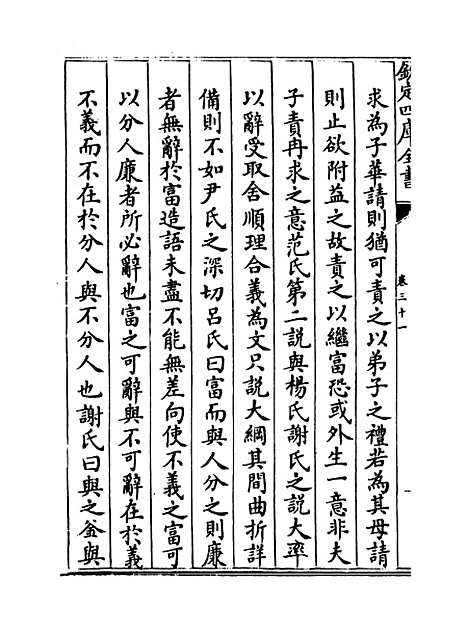 欽定四庫全書
卷三十一
求為子華請則猶可責之以弟子之禮若為其母請
則止欲附益之故責之以繼富恐或外生一意非夫
子責冉求之意范氏第二説與楊氏謝氏之説大率
以辭受取舍順理合義為文只説大綱其間曲折詳
備則不如尹氏之深切吕氏曰富而與人分之則廉
者無辭於富造語未盡不能無差向使不義之富可
以分人廉者所必辭也富之可辭與不可辭在於義
不義而不在於分人與不分人也謝氏曰與之釜與